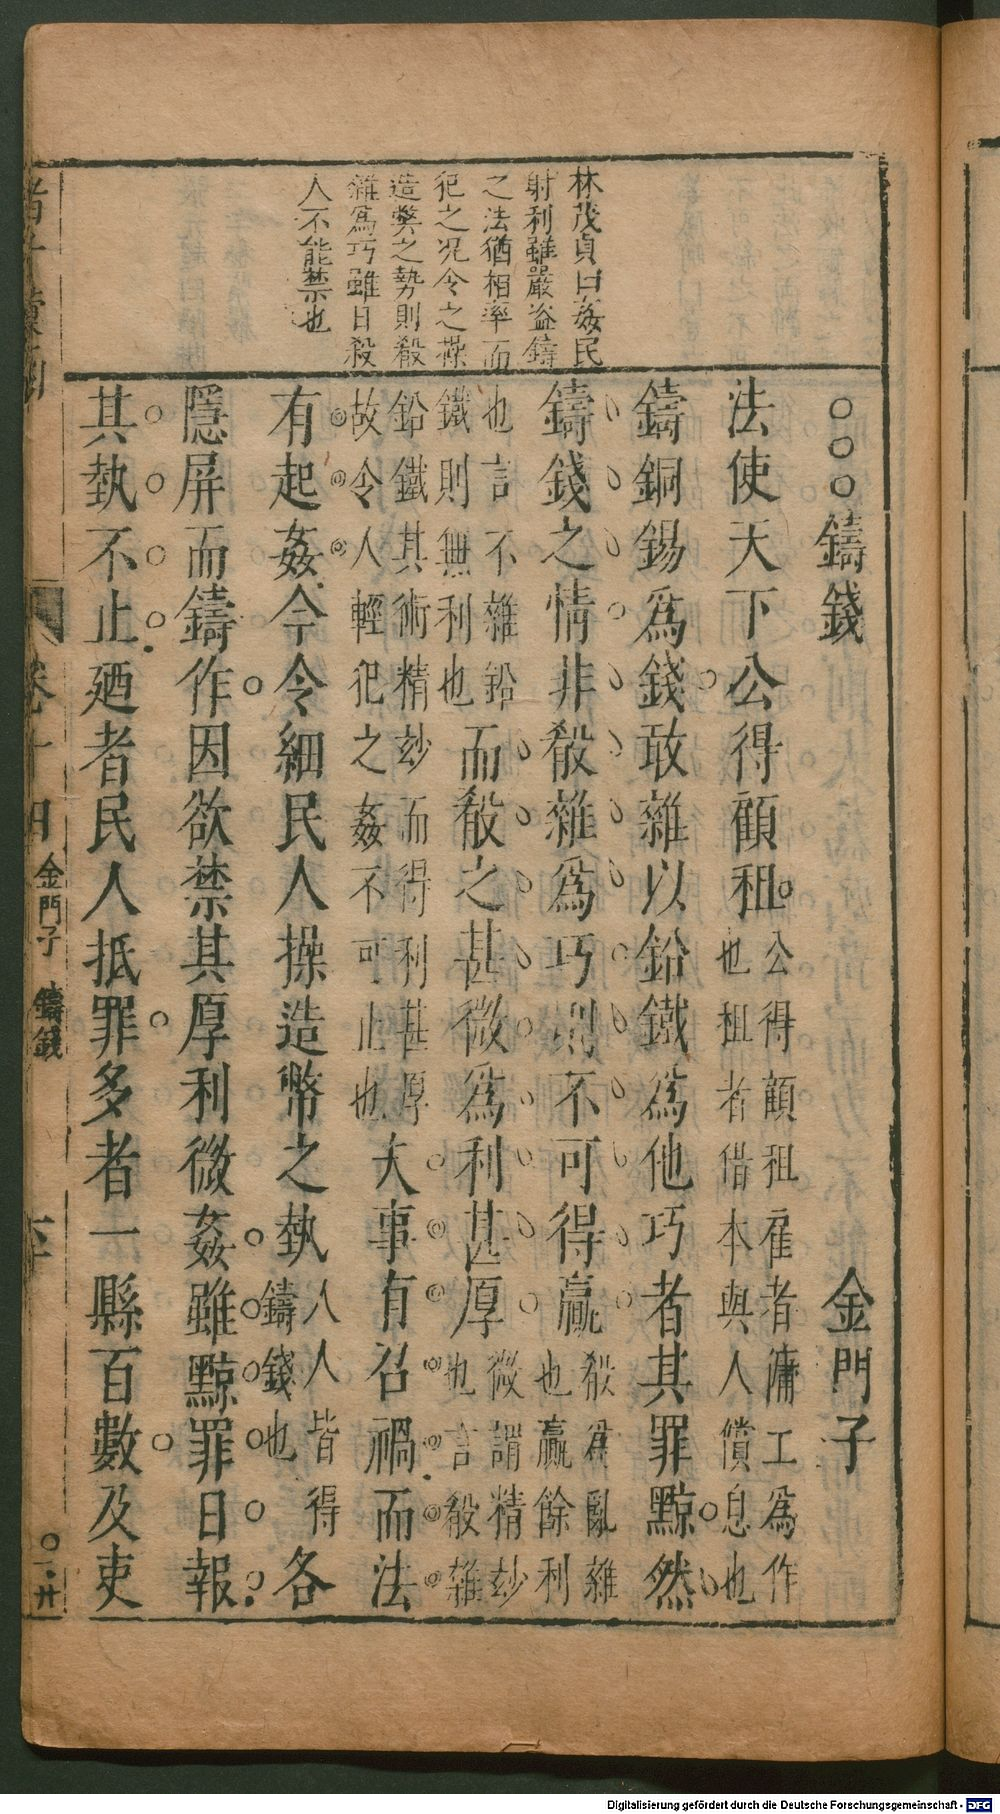 林茂貞曰姦民
射利雖嚴盜鑄
之法猶相率而
犯之况令之操
造獘之勢則殽
雜爲巧雖日殺
人不能禁也
○○○鑄錢 金門子
法使天下公得顧租
公得顧租雇者庸工爲作
也租者借本與人償息也
鑄銅錫爲錢敢雜以鉛鐵爲他巧者其罪黥然
鑄錢之情非殽雜爲巧則不可得贏
殽爲亂雜
也贏餘利
也言不雜鉛
鐵則無利也
而殽之甚微爲利甚厚
微謂精妙
也言殽雜
鉛鐵其術精玅而得利甚厚
故令人輕犯之姦不可止也
夫事有召禍而法
有起姦今令細民人操造幣之執
人人皆得
鑄錢也
各
隱屏而鑄作因欲禁其厚利微姦雖黥罪日報
其執不止廼者民人抵罪多者一縣百數及吏
卷十四
金門子
鑄錢
Digitalisierung gefördert durch die Deutsche Forschungsgemeinschaft - DFG